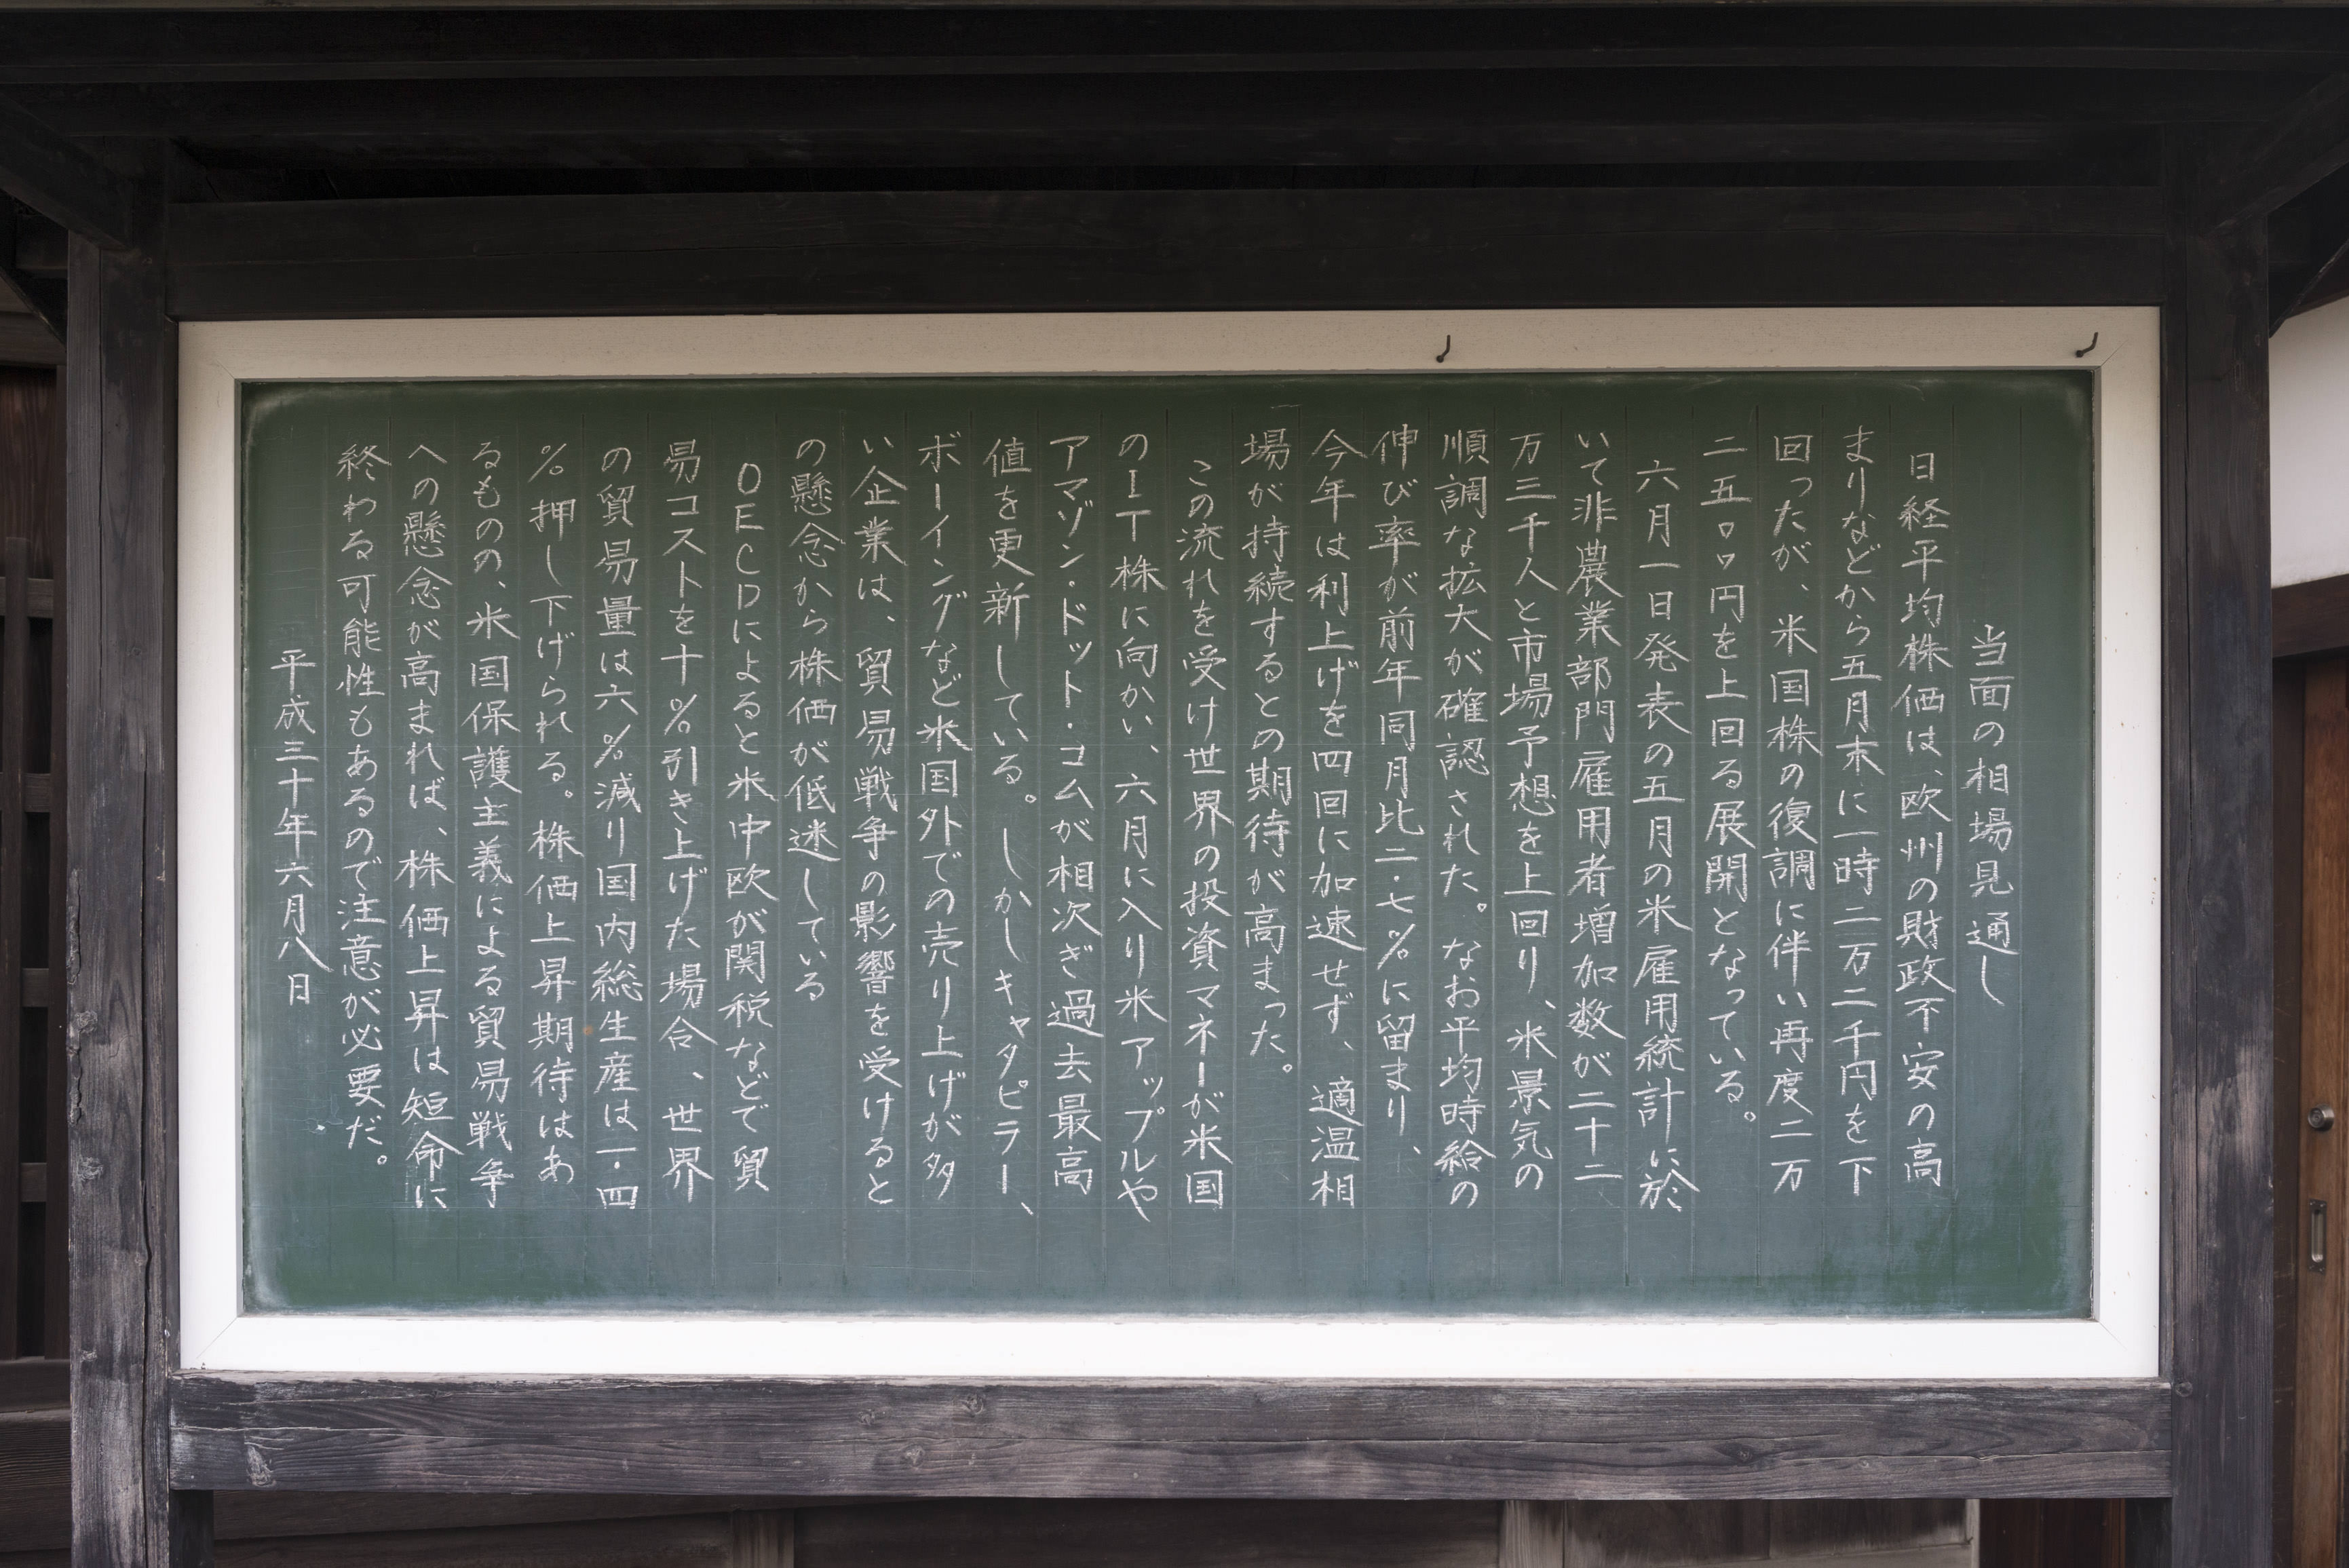 当面の相場見通し
日経平均株価は、欧州の財政不安の高
まりなどから五月末に一時二万二千円を下
回ったが、米国株の復調に伴い再度二万
二五〇〇円を上回る展開となっている。
六月一日発表の五月の米雇用統計に於
いて非農業部門雇用者増加数が二十二
万三千人と市場予想を上回り、米景気の
順調な拡大が確認された。なお平均時給の
伸び率が前年同月比二・七%に留まり、
今年は利上げを四回に加速せず、適温相
場が持続するとの期待が高まった。
この流れを受け世界の投資マネーが米国
のIT株に向かい、六月に入り米アップルや
アマゾン・ドット・コムが相次ぎ過去最高
値を更新している。しかしキャタピラー、
ボーイングなど米国外での売り上げが多
い企業は、貿易戦争の影響を受けると
の懸念から株価が低迷している
OECDによると米中欧が関税などで貿
易コストを十%引き上げた場合、世界
の貿易量は六%減り国内総生産は一・四
%押し下げられる。株価上昇期待はあ
るものの、米国保護主義による貿易戦争
への懸念が高まれば、株価上昇は短命に
終わる可能性もあるので注意が必要だ。
平成三十年六月八日